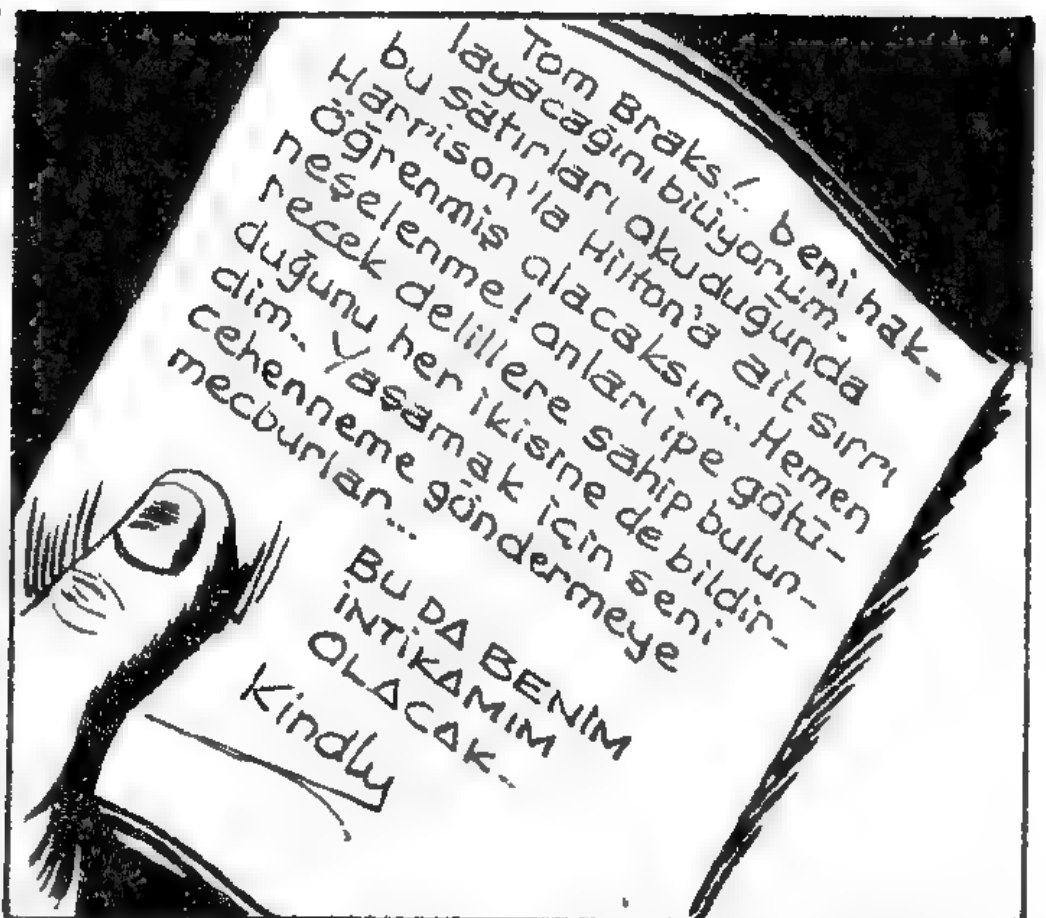 Tom Braks!.. beni hak-
layacağını biliyorum..
bu satırları okuduğunda
Harrison'la Hilton'a ait sırrı
öğrenmiş olacaksın.. Hemen
neşelenme! onları ipe götü-
recek delillere sahip bulun-
duğunu her ikisine de bildir-
dim.. Yaşamak için seni
cehenneme göndermeye
mecburlar...
BU DA BENİM
İNTİKAMIM
OLACAK..
Kindly